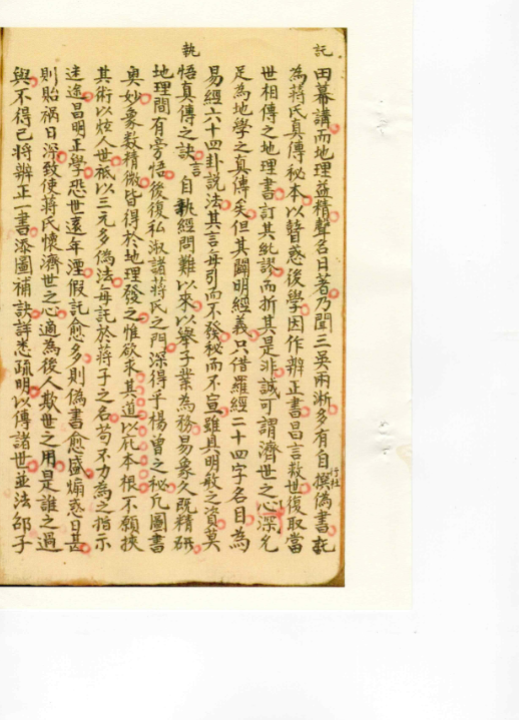 託
執
田幕講而地理益精聲名日著乃聞三吳兩淅多有自撰偽書託
行世
為蔣氏真傳秘本以瞽惑後學因作辨正書昌言救世復取當
世相傳之地理書訂其紕謬而折其是非誠可謂濟世之心深允
足為地學之真傳矣但其闢明經義只借羅經二十四字名目為
易經六十四卦說法其言每引而不發秘而不宣雖具明敏之資莫
悟真傳之訣言自執經問難以來以舉子業為務易象久既精研
地理間有旁悟後復私淑諸蔣氏之門深得乎楊曾之秘凡圖書
奧妙象数精微皆得於地理發之惟欲求其道以庇本根不願挾
其術以炫人世祗以三元多偽法每託於蔣子之名苟不力為之指示
迷途昌明正學恐世遠年湮假託愈多則偽書愈盛煽惑日甚
則貽禍日深致使蔣氏懷濟世之心適為後人欺世之用是誰之過
與不得已將辨正一書添圖補訣詳悉疏明以傳諸世並法邵子